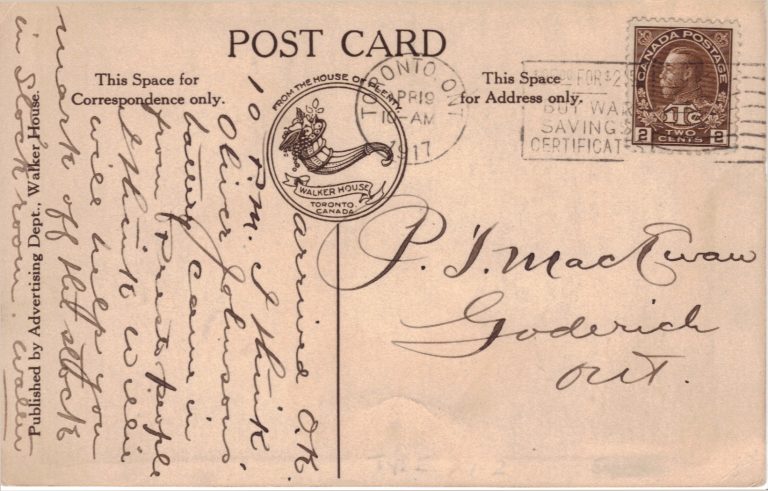 POST CARD
This Space for
Correspondence only.
This Space
for Address only.
FROM THE HOUSE OF PLENTY
WALKER HOUSE
TORONTO.
CANADA
TORONTO. ONT
APR 19
10 - AM
1917
FOR $2
BUY WAR
SAVINGS
CERTIFICAT
CANADA POSTAGE
1Tc
2 TWO CENTS 2
P. J. MacEwan
Goderich
Ont.
arrived O.K.
10 P.M. I think
Oliver Johnsons
battery came in
from Prest people
I think Willie
will help you
mark off that stock
in Stock room.
Published by Advertising Dept., Walker House.